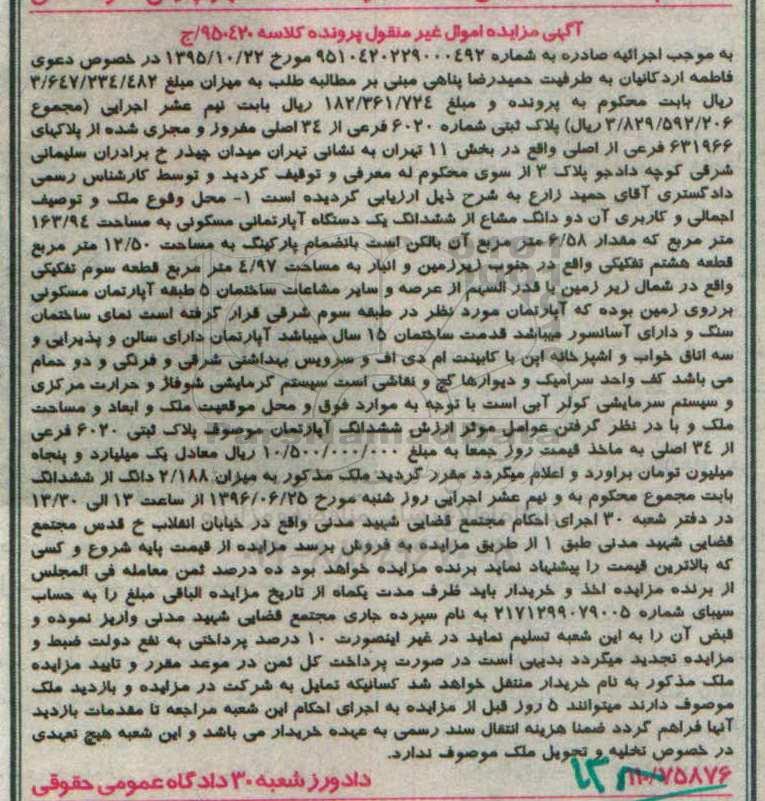 آگهی مزایده اموال غیر منقول پرونده کلاسه ۹۵۰۴۲۰/ج
به موجب اجرائیه صادره به شماره ۹۵۱۰۴۲۰۲۲۹۰۰۰۴۹۲ مورخ ۱۳۹۵/۱۰/۲۲ در خصوص دعوی
فاطمه اردکانیان به طرفیت حمیدرضا پناهی مبنی بر مطالبه طلب به میزان مبلغ ۳/۶۴۷/۲۳۴/۴۸۲
ریال بابت محکوم به پرونده و مبلغ ۱۸۲/۳۶۱/۷۲۴ ریال بابت نیم عشر اجرایی (مجموع
۳/۸۲۹/۵۹۲/۲۰۶ ریال) پلاک ثبتی شماره ۶۰۲۰ فرعی از ۳۴ اصلی مفروز و مجزی شده از پلاکهای
۶۳۱۹۶۶ فرعی از اصلی واقع در بخش ۱۱ تهران به نشانی تهران میدان چیذر خ برادران سلیمانی
شرقی کوچه دادجو پلاک ۳ از سوی محکوم له معرفی و توقیف گردید و توسط کارشناس رسمی
دادگستری آقای حمید زارع به شرح ذیل ارزیابی گردیده است ۱- محل وقوع ملک و توصیف
اجمالی و کاربری آن دو دانگ مشاع از ششدانگ یک دستگاه آپارتمانی مسکونی به مساحت ۱۶۳/۹۴
متر مربع که مقدار ۶/۵۸ متر مربع آن بالکن است بانضمام پارکینگ به مساحت ۱۲/۵۰ متر مربع
قطعه هشتم تفکیکی واقع در جنوب زیرزمین و انبار به مساحت ۴/۹۷ متر مربع قطعه سوم تفکیکی
واقع در شمال زیر زمین با قدر السهم از عرصه و سایر مشاعات ساختمان ۵ طبقه آپارتمان مسکونی
برروی زمین بوده که آپارتمان مورد نظر در طبقه سوم شرقی قرار گرفته است نمای ساختمان
سنگ و دارای آسانسور میباشد قدمت ساختمان ۱۵ سال میباشد آپارتمان دارای سالن و پذیرایی و
سه اتاق خواب و اشپزخانه اپن با کابینت ام دی اف و سرویس بهداشتی شرقی و فرنگی و دو حمام
می باشد کف واحد سرامیک و دیوارها گچ و نقاشی است سیستم گرمایشی شوفاژ و حرارت مرکزی
و سیستم سرمایشی کولر آبی است با توجه به موارد فوق و محل موقعیت ملک و ابعاد و مساحت
ملک و با در نظر گرفتن عوامل موثر ارزش ششدانگ آپارتمان موصوف پلاک ثبتی ۶۰۲۰ فرعی
از ۳۴ اصلی به ماخذ قیمت روز جمعا به مبلغ ۱۰/۵۰۰/۰۰۰/۰۰۰ ریال معادل یک میلیارد و پنجاه
میلیون تومان براورد و اعلام میگردد مقرر گردید ملک مذکور به میزان ۲/۱۸۸ دانگ از ششدانگ
بابت مجموع محکوم به و نیم عشر اجرایی روز شنبه مورخ ۱۳۹۶/۰۶/۲۵ از ساعت ۱۳ الی ۱۳/۳۰
در دفتر شعبه ۳۰ اجرای احکام مجتمع قضایی شهید مدنی واقع در خیابان انقلاب خ قدس مجتمع
قضایی شهید مدنی طبق ۱ از طریق مزایده به فروش برسد مزایده از قیمت پایه شروع و کسی
که بالاترین قیمت را پیشنهاد نماید برنده مزایده خواهد بود ده درصد ثمن معامله فی المجلس
از برنده مزایده اخذ و خریدار باید ظرف مدت یکماه از تاریخ مزایده الباقی مبلغ را به حساب
سیبای شماره ۲۱۷۱۲۹۹۰۷۹۰۰۵ به نام سپرده جاری مجتمع قضایی شهید مدنی واریز نموده و
قبض آن را به این شعبه تسلیم نماید در غیر اینصورت ۱۰ درصد پرداختی به نفع دولت ضبط و
مزایده تجدید میگردد بدیهی است در صورت پرداخت کل ثمن در موعد مقرر و تایید مزایده
ملک مذکور به نام خریدار منتقل خواهد شد کسانیکه تمایل به شرکت در مزایده و بازدید ملک
موصوف دارند میتوانند ۵ روز قبل از مزایده به اجرای احکام این شعبه مراجعه تا مقدمات بازدید
آنها فراهم گردد ضمنا هزینه انتقال سند رسمی به عهده خریدار می باشد و این شعبه هیچ تعهدی
در خصوص تخلیه و تحویل ملک موصوف ندارد.
۱۱۰/۷۵۸۷۶ دادورز شعبه ۳۰ دادگاه عمومی حقوقی